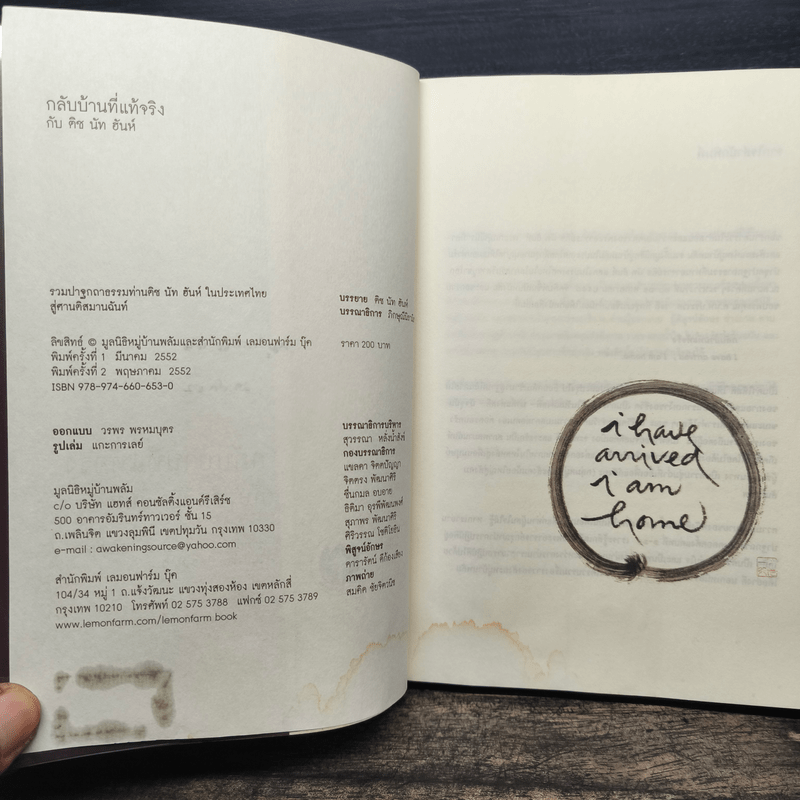 กลับบ้านที่แท้จริง
กับ ติช นัท ฮันห์
รวมปาฐกถาธรรมท่านติช นัท ฮันห์ ในประเทศไทย
สู่ศานติสมานฉันท์
ลิขสิทธ์ © มูลนิธิหมู่บ้านพลัมและสำนักพิมพ์ เลมอนฟาร์ม บุ๊ค
พิมพ์ครั้งที่ 1 มีนาคม 2552
พิมพ์ครั้งที่ 2 พฤษภาคม 2552
ISBN 978-974-660-653-0
ออกแบบ วรพร พรหมบุตร
รูปเล่ม แกะการเลย์
มูลนิธิหมู่บ้านพลัม
c/o บริษัท แฮทส์ คอนซัลติ้งแอนด์รีเสิร์ช
500 อาคารอัมรินทร์ทาวเวอร์ ชั้น 15
ถ.เพลินจิต แขวงลุมพินี เขตปทุมวัน กรุงเทพ 10330
e-mail : awakeningsource@yahoo.com
สำนักพิมพ์ เลมอนฟาร์ม บุ๊ค
104/34 หมู่ 1 ถ.แจ้งวัฒนะ แขวงทุ่งสองห้อง เขตหลักสี่
กรุงเทพ 10210 โทรศัพท์ 02 575 3788 แฟกซ์ 02 575 3789
www.lemonfarm.com/lemonfarm book
บรรยาย ติช นัท ฮันห์
บรรณาธิการ
ราคา 200 บาท
บรรณาธิการบริหาร
สุวรรณา หลั่งน้ำสังข์
กองบรรณาธิการ
แขลดา จิตตปัญญา
จิตตรง พัฒนาศิริ
ชื่นกมล อบอาย
ธิติมา อุรพีพัฒนพงศ์
สุภาพร พัฒนาศิริ
ศิริวรรณ โชติโยธิน
พิสูจน์อักษร
ดารารัตน์ ดีก้องเสียง
ภาพถ่าย
สมคิด ชัยจิตวนิช
i have
arrived
i am
home